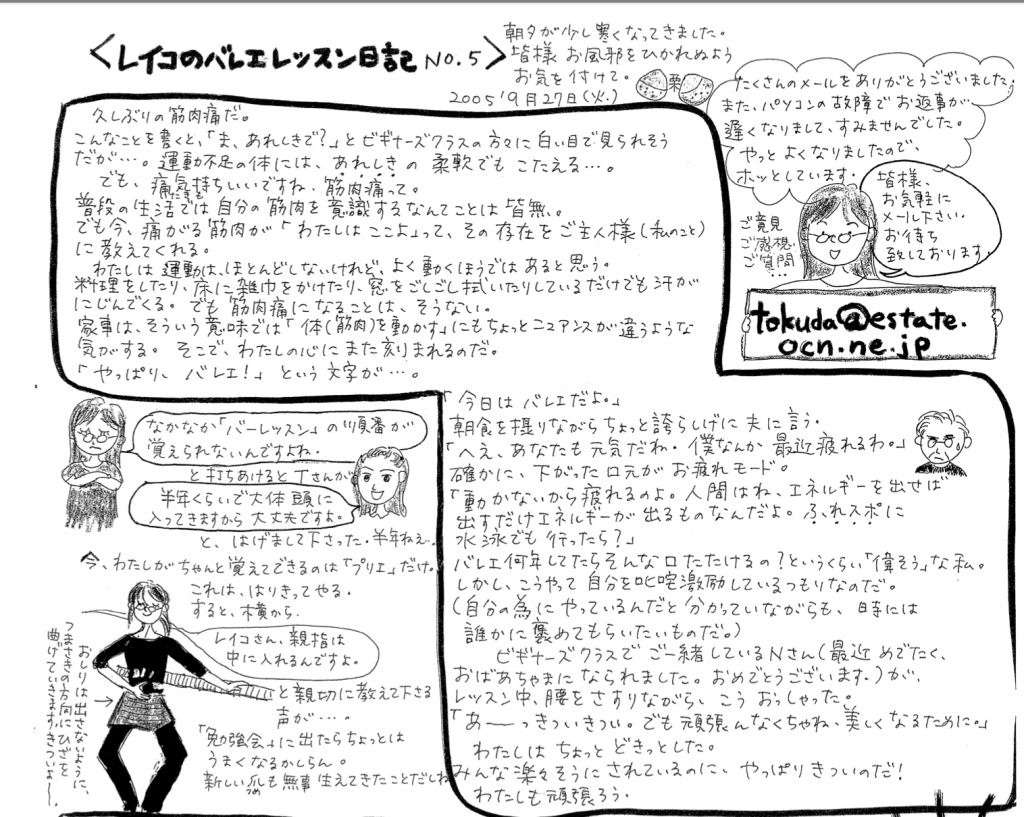 <レイコのバレエレッスン日記 NO.5>
朝夕が少し寒くなってきました。
皆様 お風邪をひかれぬよう
お気を付けて。
栗
2005'9月27日(火.)
たくさんのメールをありがとうございました。
また、パソコンの故障でお返事が
遅くなりまして、すみませんでした。
やっと よくなりましたので、
ホッとしています。
皆様、
お気軽に
メール下さい。
お待ち
致しております。
ご意見
ご感想
ご質問
…
tokuda@estate.
ocn.ne.jp
久しぶりの筋肉痛だ。
こんなことを書くと、「ま、あれしきで?」とビギナーズクラスの方々に白い目で見られそう
だが…。運動不足の体には、あれしきの 柔軟でもこたえる…。
でも、痛気持ちいいですね、筋肉痛って。
普段の生活では自分の筋肉を意識するなんてことは皆無。
でも今、痛がる筋肉が「わたしはここよ」って、その存在をご主人様(私のこと)
に教えてくれる。
わたしは運動は、ほとんどしないけれど、よく動くほうではあると思う。
料理をしたり、床に雑巾をかけたり、窓をごしごし拭いたりしているだけでも汗が
にじんでくる。でも筋肉痛になることは、そうない。
家事は、そういう意味では「体(筋肉)を動かす」にもちょっとニュアンスが違うような
気がする。そこで、わたしの心にまた刻まれるのだ。
「やっぱり、バレエ!」という文字が…。
なかなか「バーレッスン」の順番が
覚えられないんですよね.
と打ちあけるとTさんが
半年くらいで大体頭に
入ってきますから大丈夫ですよ。
と、はげまして下さった.半年ねぇ…
今、わたしがちゃんと覚えてできるのは「プリエ」だけ。
これは、はりきってやる.
すると、横から.
レイコさん、親指は
中に入れるんですよ。
と親切に教えて下さる
声が…。
おしりは出さないように、
つまさきの方向にひざを
曲げていきます。きついよー。
「勉強会」に出たらちょっとは
うまくなるかしらん。
新しい爪も無事生えてきたことだしね
つめ
「今日はバレエだよ。」
朝食を摂りながらちょっと誇らしげに夫に言う.
「へえ、あなたも元気だね.僕なんか最近疲れるわ。」
確かに、下がった口元がお疲れモード。
「動かないから疲れるのよ。人間はね、エネルギーを出せば
出すだけエネルギーが出るものなんだよ。ふれスポに
水泳でも行ったら?」
バレエ何年してたらそんな口たたけるの?というくらい「偉そう」な私。
しかし、こうやって自分を叱咤激励しているつもりなのだ。
(自分の為にやっているんだと分かっていながらも、時には
誰かに褒めてもらいたいものだ。)
ビギナーズクラスでご一緒しているNさん(最近めでたく、
おばあちゃまになられました。おめでとうございます。)が、
レッスン中、腰をさすりながら、こうおっしゃった。
「あ——っきついきつい。でも頑張んなくちゃね、美しくなるために。」
わたしはちょっとどきっとした。
みんな楽々そうにされているのに、やっぱりきついのだ!
わたしも頑張ろう.